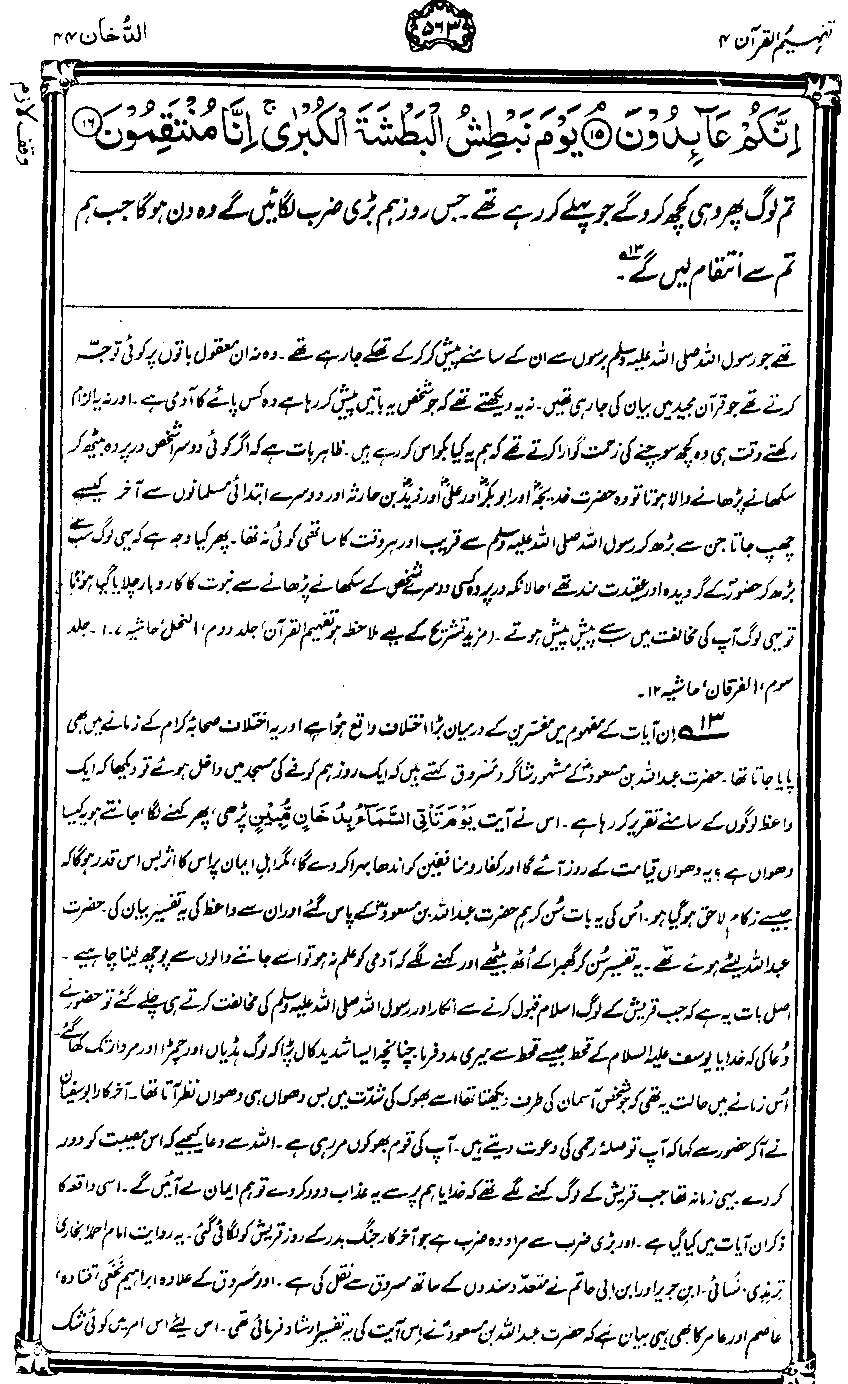 تفہیم القرآن ۴
۵۶۳
الدُّخان ۴۴
اِنَّكُمْ عَآىِٕدُوْنَ ۘ۝۱۵ يَوْمَ نَبْطِشُ الْبَطْشَةَ الْكُبْرٰى ۚ اِنَّا مُنْتَقِمُوْنَ ۝۱۶
وقف لازم
تم لوگ پھر وہی کچھ کرو گے جو پہلے کر رہے تھے۔ جس روز ہم بڑی ضرب لگائیں گے وہ دن ہوگا جب ہم
تم سے انتقام لیں گے۱۳؎۔
تھے جو رسول اللہ صلی اللہ علیہ وسلم برسوں سے ان کے سامنے پیش کر کر کے تھکے جا رہے تھے۔ وہ نہ ان معقول باتوں پر کوئی توجہ
کرتے تھے جو قرآن مجید میں بیان کی جا رہی تھیں۔ نہ یہ دیکھتے تھے کہ جو شخص یہ باتیں پیش کر رہا ہے وہ کس پائے کا آدمی ہے۔ اور نہ یہ الزام
رکھتے وقت ہی وہ کچھ سوچنے کی زحمت گوارا کرتے تھے کہ ہم یہ کیا بکواس کر رہے ہیں۔ ظاہر بات ہے کہ اگر کوئی دوسرا شخص در پردہ بیٹھ کر
سکھانے پڑھانے والا ہوتا تو وہ حضرت خدیجہؓ اور ابوبکرؓ اور علیؓ اور زیدؓ بن حارثہ اور دوسرے ابتدائی مسلمانوں سے آخر کیسے
چھپ جاتا جن سے بڑھ کر رسول اللہ صلی اللہ علیہ وسلم سے قریب اور ہر وقت کا ساتھی کوئی نہ تھا۔ پھر کیا وجہ ہے کہ یہی لوگ سب سے
بڑھ کر حضورؐ کے گرویدہ اور عقیدت مند تھے، حالانکہ در پردہ کسی دوسرے شخص کے سکھانے پڑھانے سے نبوت کا کاروبار چلایا گیا ہوتا
تو یہی لوگ آپ کی مخالفت میں سب سے پیش پیش ہوتے۔ (مزید تشریح کے لیے ملاحظہ ہو تفہیم القرآن، جلد دوم، النحل، حاشیہ ۱۰۷۔ جلد
سوم، الفرقان، حاشیہ ۱۲۔
۱۳؎ اِن آیات کے مفہوم میں مفسّرین کے درمیان بڑا اختلاف واقع ہوا ہے اور یہ اختلاف صحابہ کرام کے زمانے میں بھی
پایا جاتا تھا۔ حضرت عبداللہ بن مسعودؓ کے مشہور شاگرد مَسْروق کہتے ہیں کہ ایک روز ہم کوفے کی مسجد میں داخل ہوئے تو دیکھا کہ ایک
واعظ لوگوں کے سامنے تقریر کر رہا ہے۔ اس نے آیت يَوْمَ تَاْتِی السَّمَآءُ بِدُخَانٍ مُّبِيْنٍ پڑھی، پھر کہنے لگا، جانتے ہو یہ کیسا
دھواں ہے؟ یہ دھواں قیامت کے روز آئے گا اور کفار و منافقین کو اندھا بہرا کر دے گا، مگر اہلِ ایمان پر اس کا اثر بس اس قدر ہوگا کہ
جیسے زکام لاحق ہو گیا ہو۔ اُس کی یہ بات سُن کر ہم حضرت عبداللہ بن مسعودؓ کے پاس گئے اور ان سے واعظ کی یہ تفسیر بیان کی۔ حضرت
عبداللہ لیٹے ہوئے تھے۔ یہ تفسیر سُن کر گھبرا کے اُٹھ بیٹھے اور کہنے لگے کہ آدمی کو علم نہ ہو تو اسے جاننے والوں سے پوچھ لینا چاہیے۔
اصل بات یہ ہے کہ جب قریش کے لوگ اسلام قبول کرنے سے انکار اور رسول اللہ صلی اللہ علیہ وسلم کی مخالفت کرتے ہی چلے گئے تو حضورؐ نے
دُعا کی کہ خدایا یوسف علیہ السلام کے قحط جیسے قحط سے میری مدد فرما۔ چنانچہ ایسا شدید کال پڑا کہ لوگ ہڈیاں اور چمڑا اور مردار تک کھا گئے۔
اُس زمانے میں حالت یہ تھی کہ جو شخص آسمان کی طرف دیکھتا تھا اسے بھوک کی شدّت میں بس دھواں ہی دھواں نظر آتا تھا۔ آخر کار ابو سفیان
نے آ کر حضورؐ سے کہا کہ آپ تو صلۂ رحمی کی دعوت دیتے ہیں۔ آپ کی قوم بھوکوں مر رہی ہے۔ اللہ سے دعا کیجیے کہ اس مصیبت کو دور
کر دے۔ یہی زمانہ تھا جب قریش کے لوگ کہنے لگے تھے کہ خدایا ہم پر سے یہ عذاب دور کر دے تو ہم ایمان لے آئیں گے۔ اسی واقعہ کا
ذکر ان آیات میں کیا گیا ہے۔ اور بڑی ضرب سے مراد وہ ضرب ہے جو آخر کار جنگ بدر کے روز قریش کو لگائی گئی۔ یہ روایت امام احمد، بخاری
ترمذی، نَسائی، ابنِ جریر اور ابن ابی حاتم نے متعدّد سندوں کے ساتھ مسروق سے نقل کی ہے۔ اور مسروق کے علاوہ ابراہیم نَخَعی، قتادہ،
عاصم اور عامر کا بھی یہی بیان ہے کہ حضرت عبداللہ بن مسعودؓ نے اِس آیت کی یہ تفسیر ارشاد فرمائی تھی۔ اس لیے اس امر میں کوئی شک